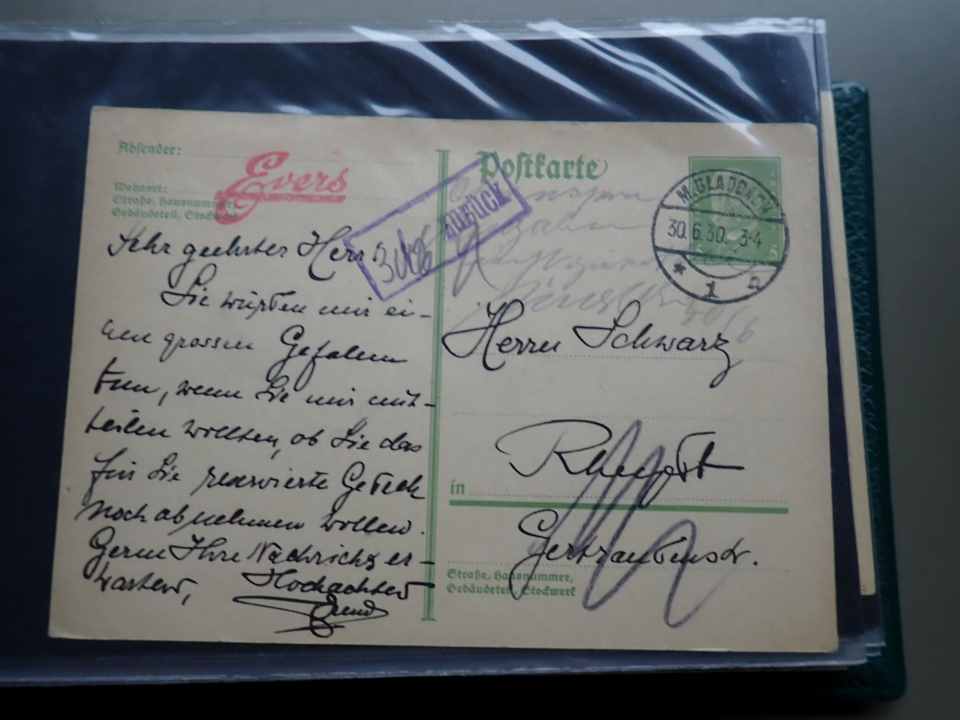 Absender:
Evers
Wohnort:
Straße, Hausnummer,
Gebäudeteil, Stockwerk
Sehr geehrter Herr
Sie würden mir ei-
nen grossen Gefalem
tun, wenn Sie mir mit-
teilen wollten, ob Sie das
für Sie reservierte Gedeck
noch abnehmen wollen.
Gerne Ihre Nachricht er-
warten, Hochachtend
Postkarte
zurück
M.GLADBACH
30.6.30. 3-4
* 1 n
Herrn Schwarz
in Rheydt
Gertraudenstr.
Straße, Hausnummer,
Gebäudeteil, Stockwerk